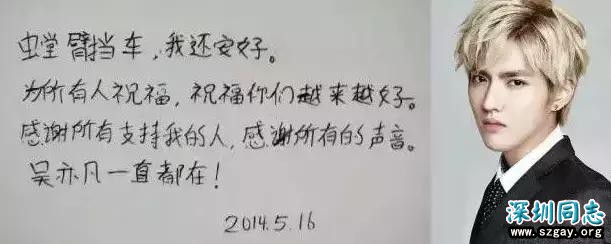 虫堂臂挡车，我还安好。
为所有人祝福，祝福你们越来越好。
感谢所有支持我的人，感谢所有的声音。
吴亦凡一直都在！
2014.5.16
深圳同志
www.szgay.org